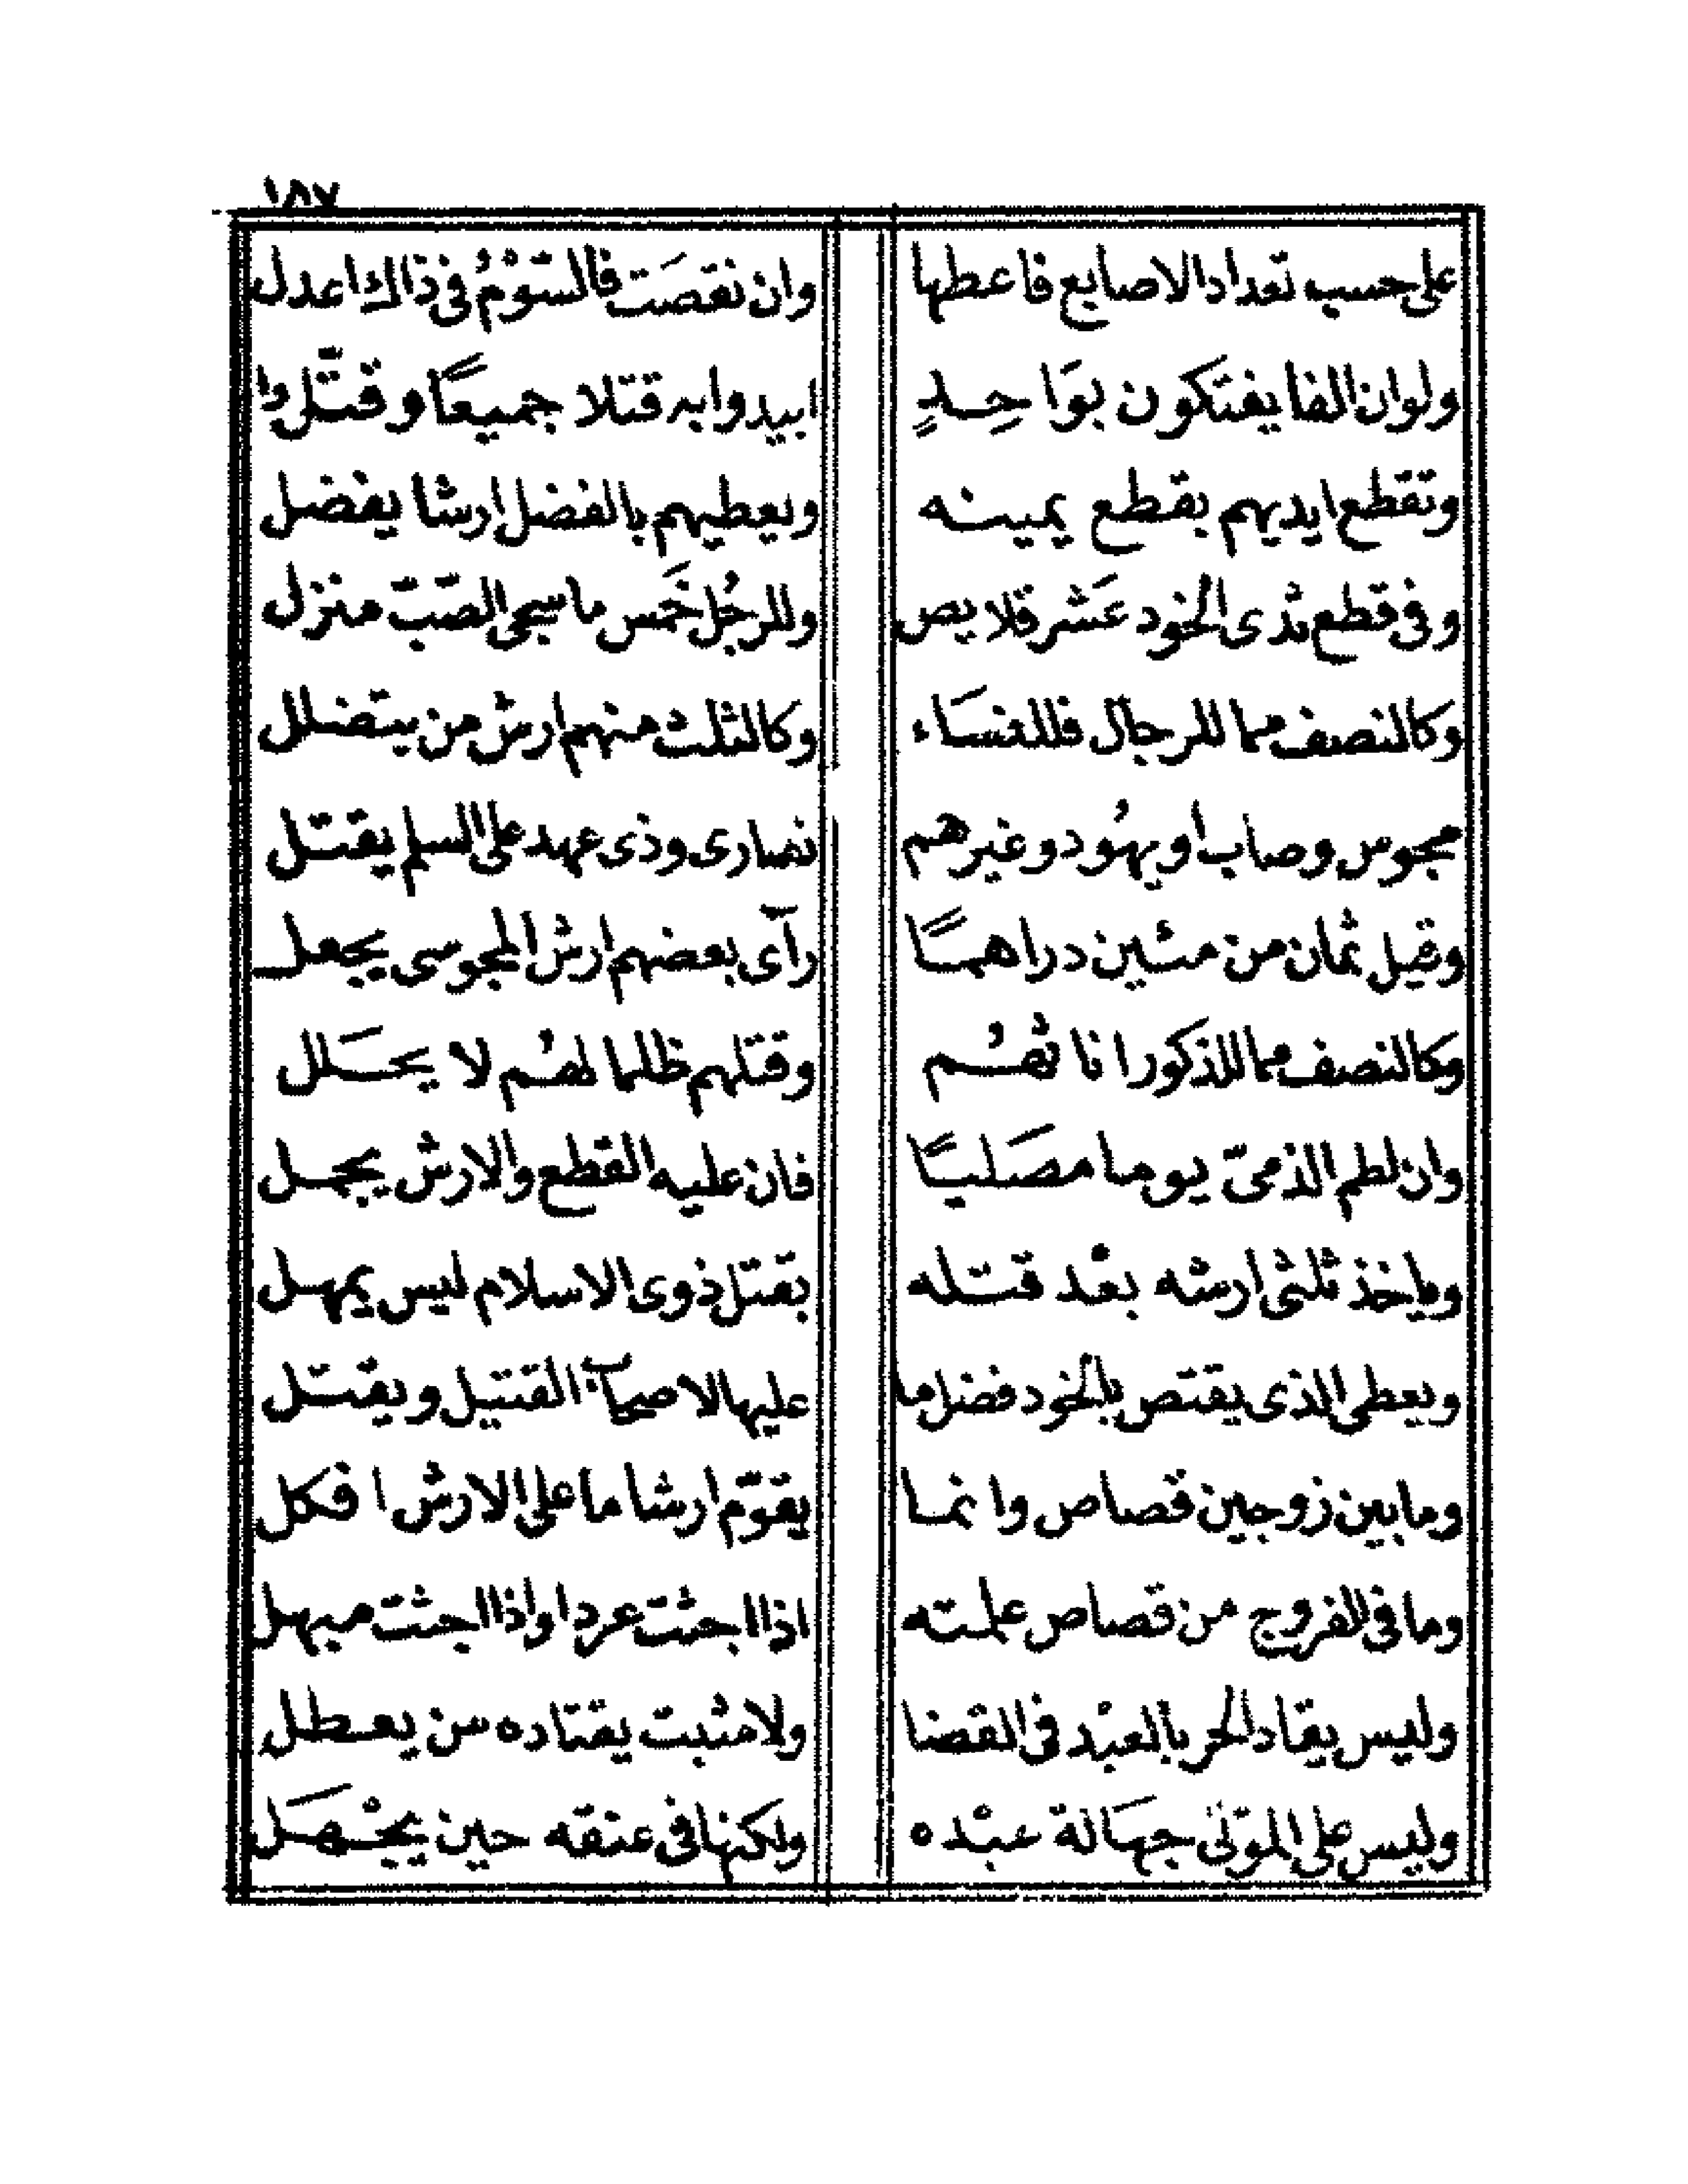 ١٨٧
على حسب تعداد الاصابع فاعطها وان نقصَت فالسّوْمُ فى ذاك اعدل
ولو ان الفا يفتكون بوَاحِدٍ ابيدوا به قتلا جميعًا وقتّلوا
وتقطع ايديهم بقطع يمينه ويعطيهم بالفضل ارشا يفضل
وفى قطع ثدى الخود عَشر قلايص وللرجُل خَمس ما سجى الصّبّ منزل
وكالنصف مما للرجال فللنسَاء وكالثلث منهم ارش من يتضلل
مجوس وصاب او يهُود وغيرهم نصارى وذى عهد على السلم يقتل
وقيل ثمان من مئين دراهمًا رآى بعضهم ارش المجوسى يجعل
وكالنصف مما للذكور اناثهُم وقتلهم ظلما لهُم لا يحَلل
وان لطم الذمىّ يوما مصَليًا فان عليه القطع والارش يجمل
وياخذ ثلثى ارشه بعْد قتله بقتل ذوى الاسلام ليس يمهل
ويعطى الذى يقتص بالخود فضل ما عليها لاصحاب القتيل ويقتل
وما بين زوجين قصاص وانما يقوّم ارشا ما على الارش ا فكل
وما فى الفروج من قصاص علمته اذا اجثت عردا واذا اجثت مبهل
وليس يقاد الحر بالعبْد فى القضا ولا مثبت يقتاده من يعطل
وليس على المولى جهَالة عبْده ولكنها فى عتقه حين يجْهَل